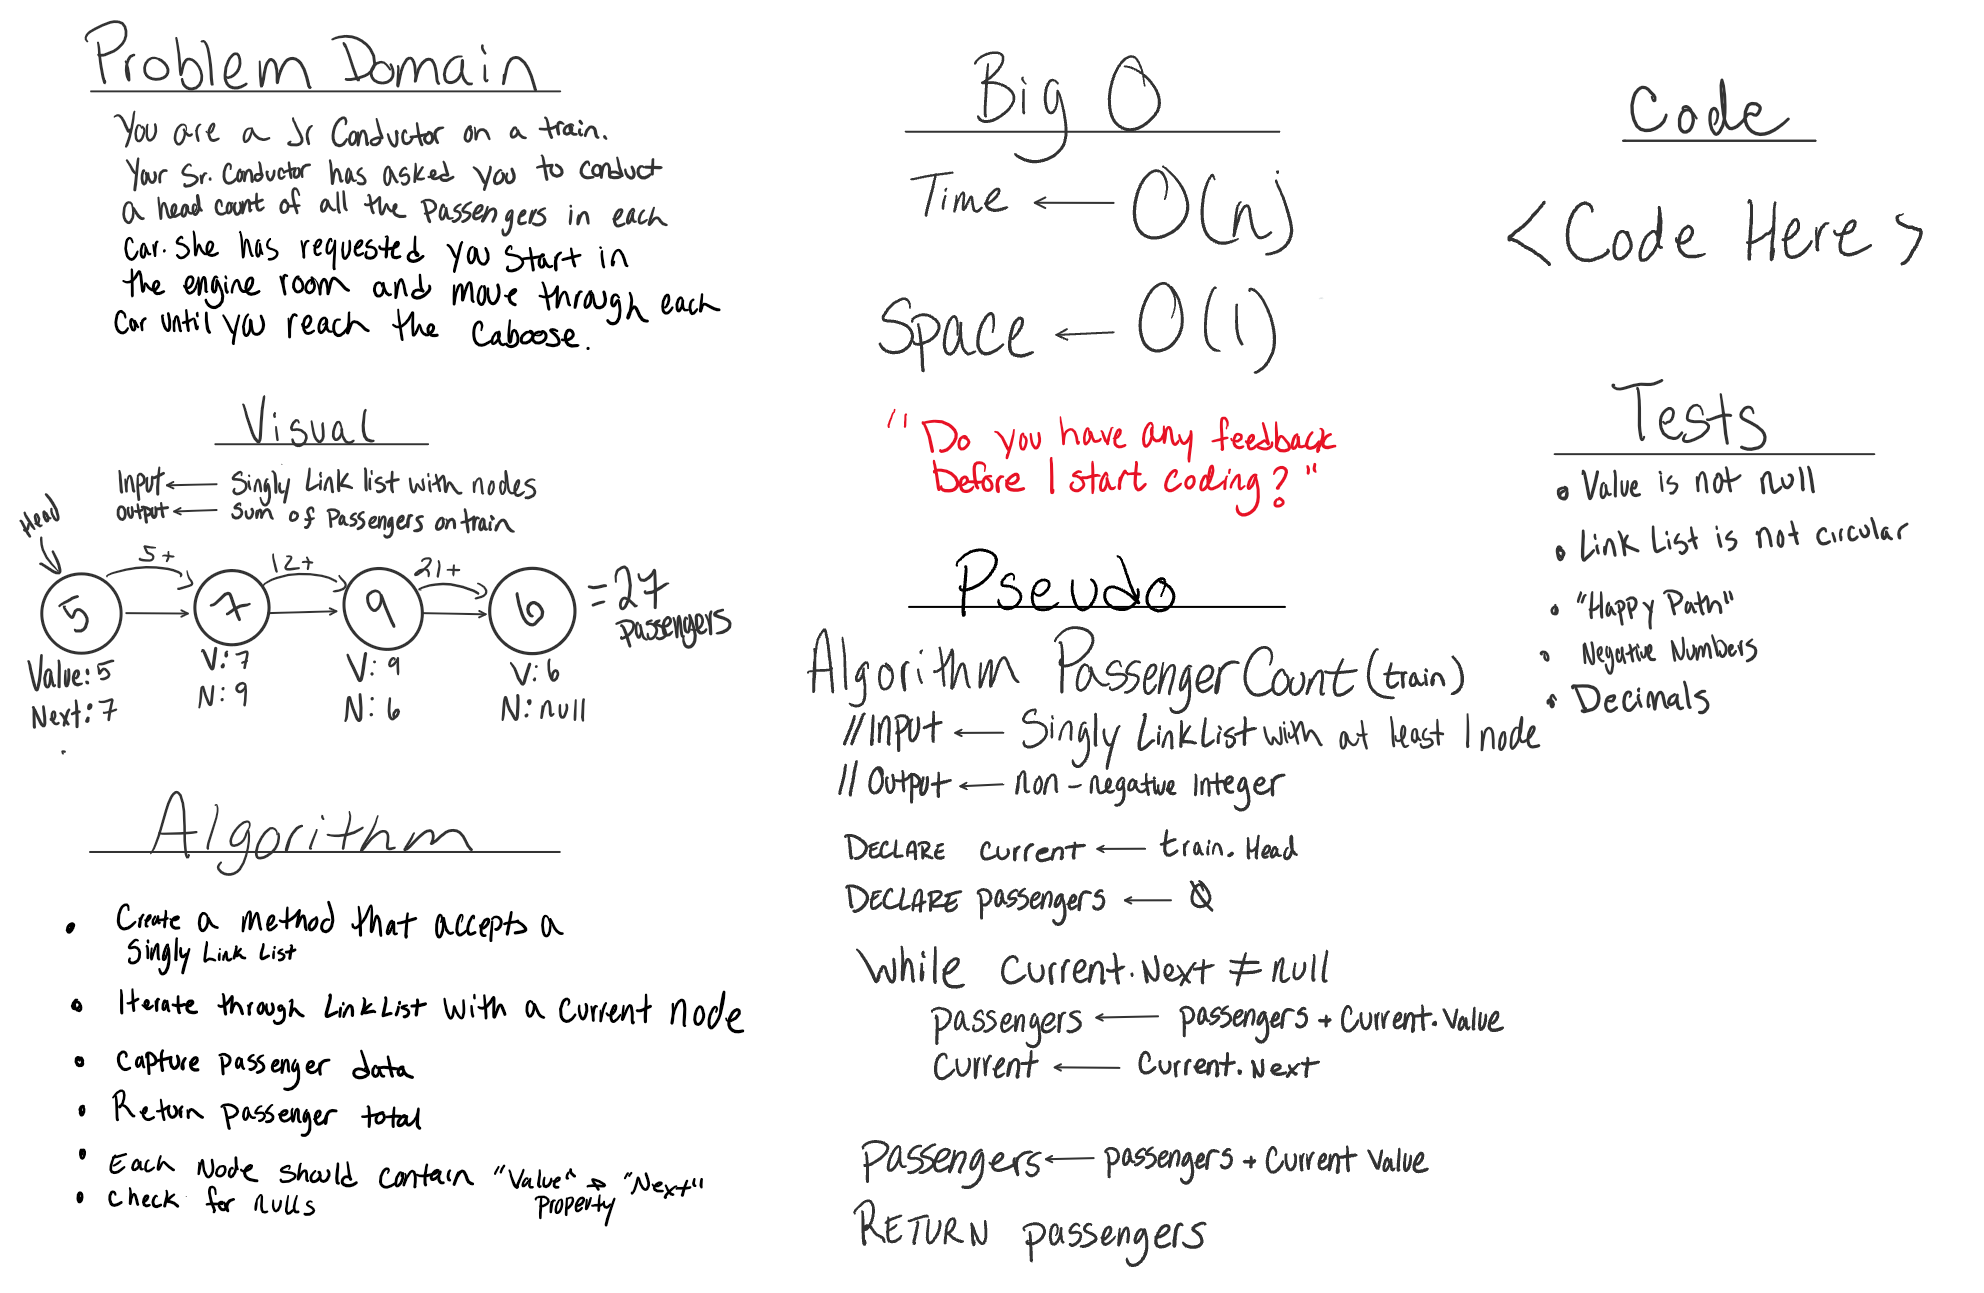 Problem Domain
You are a Jr Conductor on a train.
Your Sr. Conductor has asked you to conduct
a head count of all the Passengers in each
car. She has requested you start in
the engine room and move through each
Car until you reach the Caboose.
Visual
Input ← Singly Link list with nodes
Output ← Sum of Passengers on train
Head
5+ 12+ 21+
5 7 9 6 = 27
Passengers
Value: 5 V: 7 V: 9 V: 6
Next: 7 N: 9 N: 6 N: null
Algorithm
• Create a method that accepts a
Singly Link List
• Iterate through LinkList with a current node
• Capture passenger data
• Return passenger total
• Each Node should contain "Value" & "Next"
Property
• Check for nulls
Big O
Time ← O(n)
Space ← O(1)
"Do you have any feedback
before I start coding?"
Pseudo
Algorithm PassengerCount(train)
// Input ← Singly LinkList with at least 1 node
// Output ← non-negative Integer
DECLARE current ← train.Head
DECLARE passengers ← 0
While Current.Next ≠ null
passengers ← passengers + Current.Value
Current ← Current.Next
Passengers ← passengers + Current Value
RETURN passengers
Code
<Code Here>
Tests
• Value is not null
• Link List is not circular
• "Happy Path"
• Negative Numbers
• Decimals